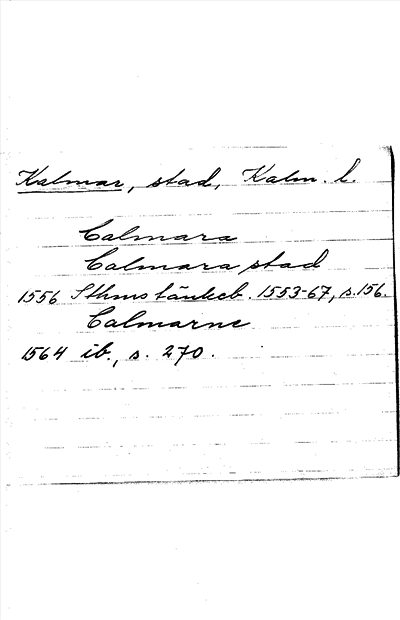 Kalmar, stad, Kalm. l.
Calmara
Calmara stad
1556 Sthms tänkeb. 1553-67, s. 156.
Calmarne
1564 ib., s. 270.